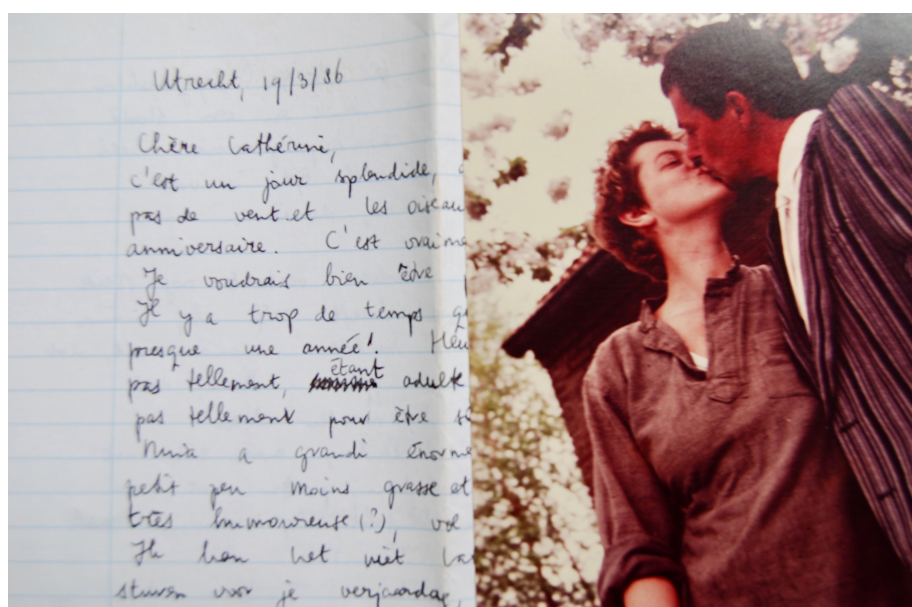 Utrecht, 19/3/86
Chère Cathérine,
c'est un jour splendide,
pas de vent et les oiseau
anniversaire. C'est vraime
Je voudrais bien être
Il y a trop de temps qu
presque une année! Heu
pas tellement, étant adulte
pas tellement pour être
Nuria a grandi énorme
petit peu moins grasse et
très humoureuse (?),
Ik kon het niet la
sturen voor je verjaardag,